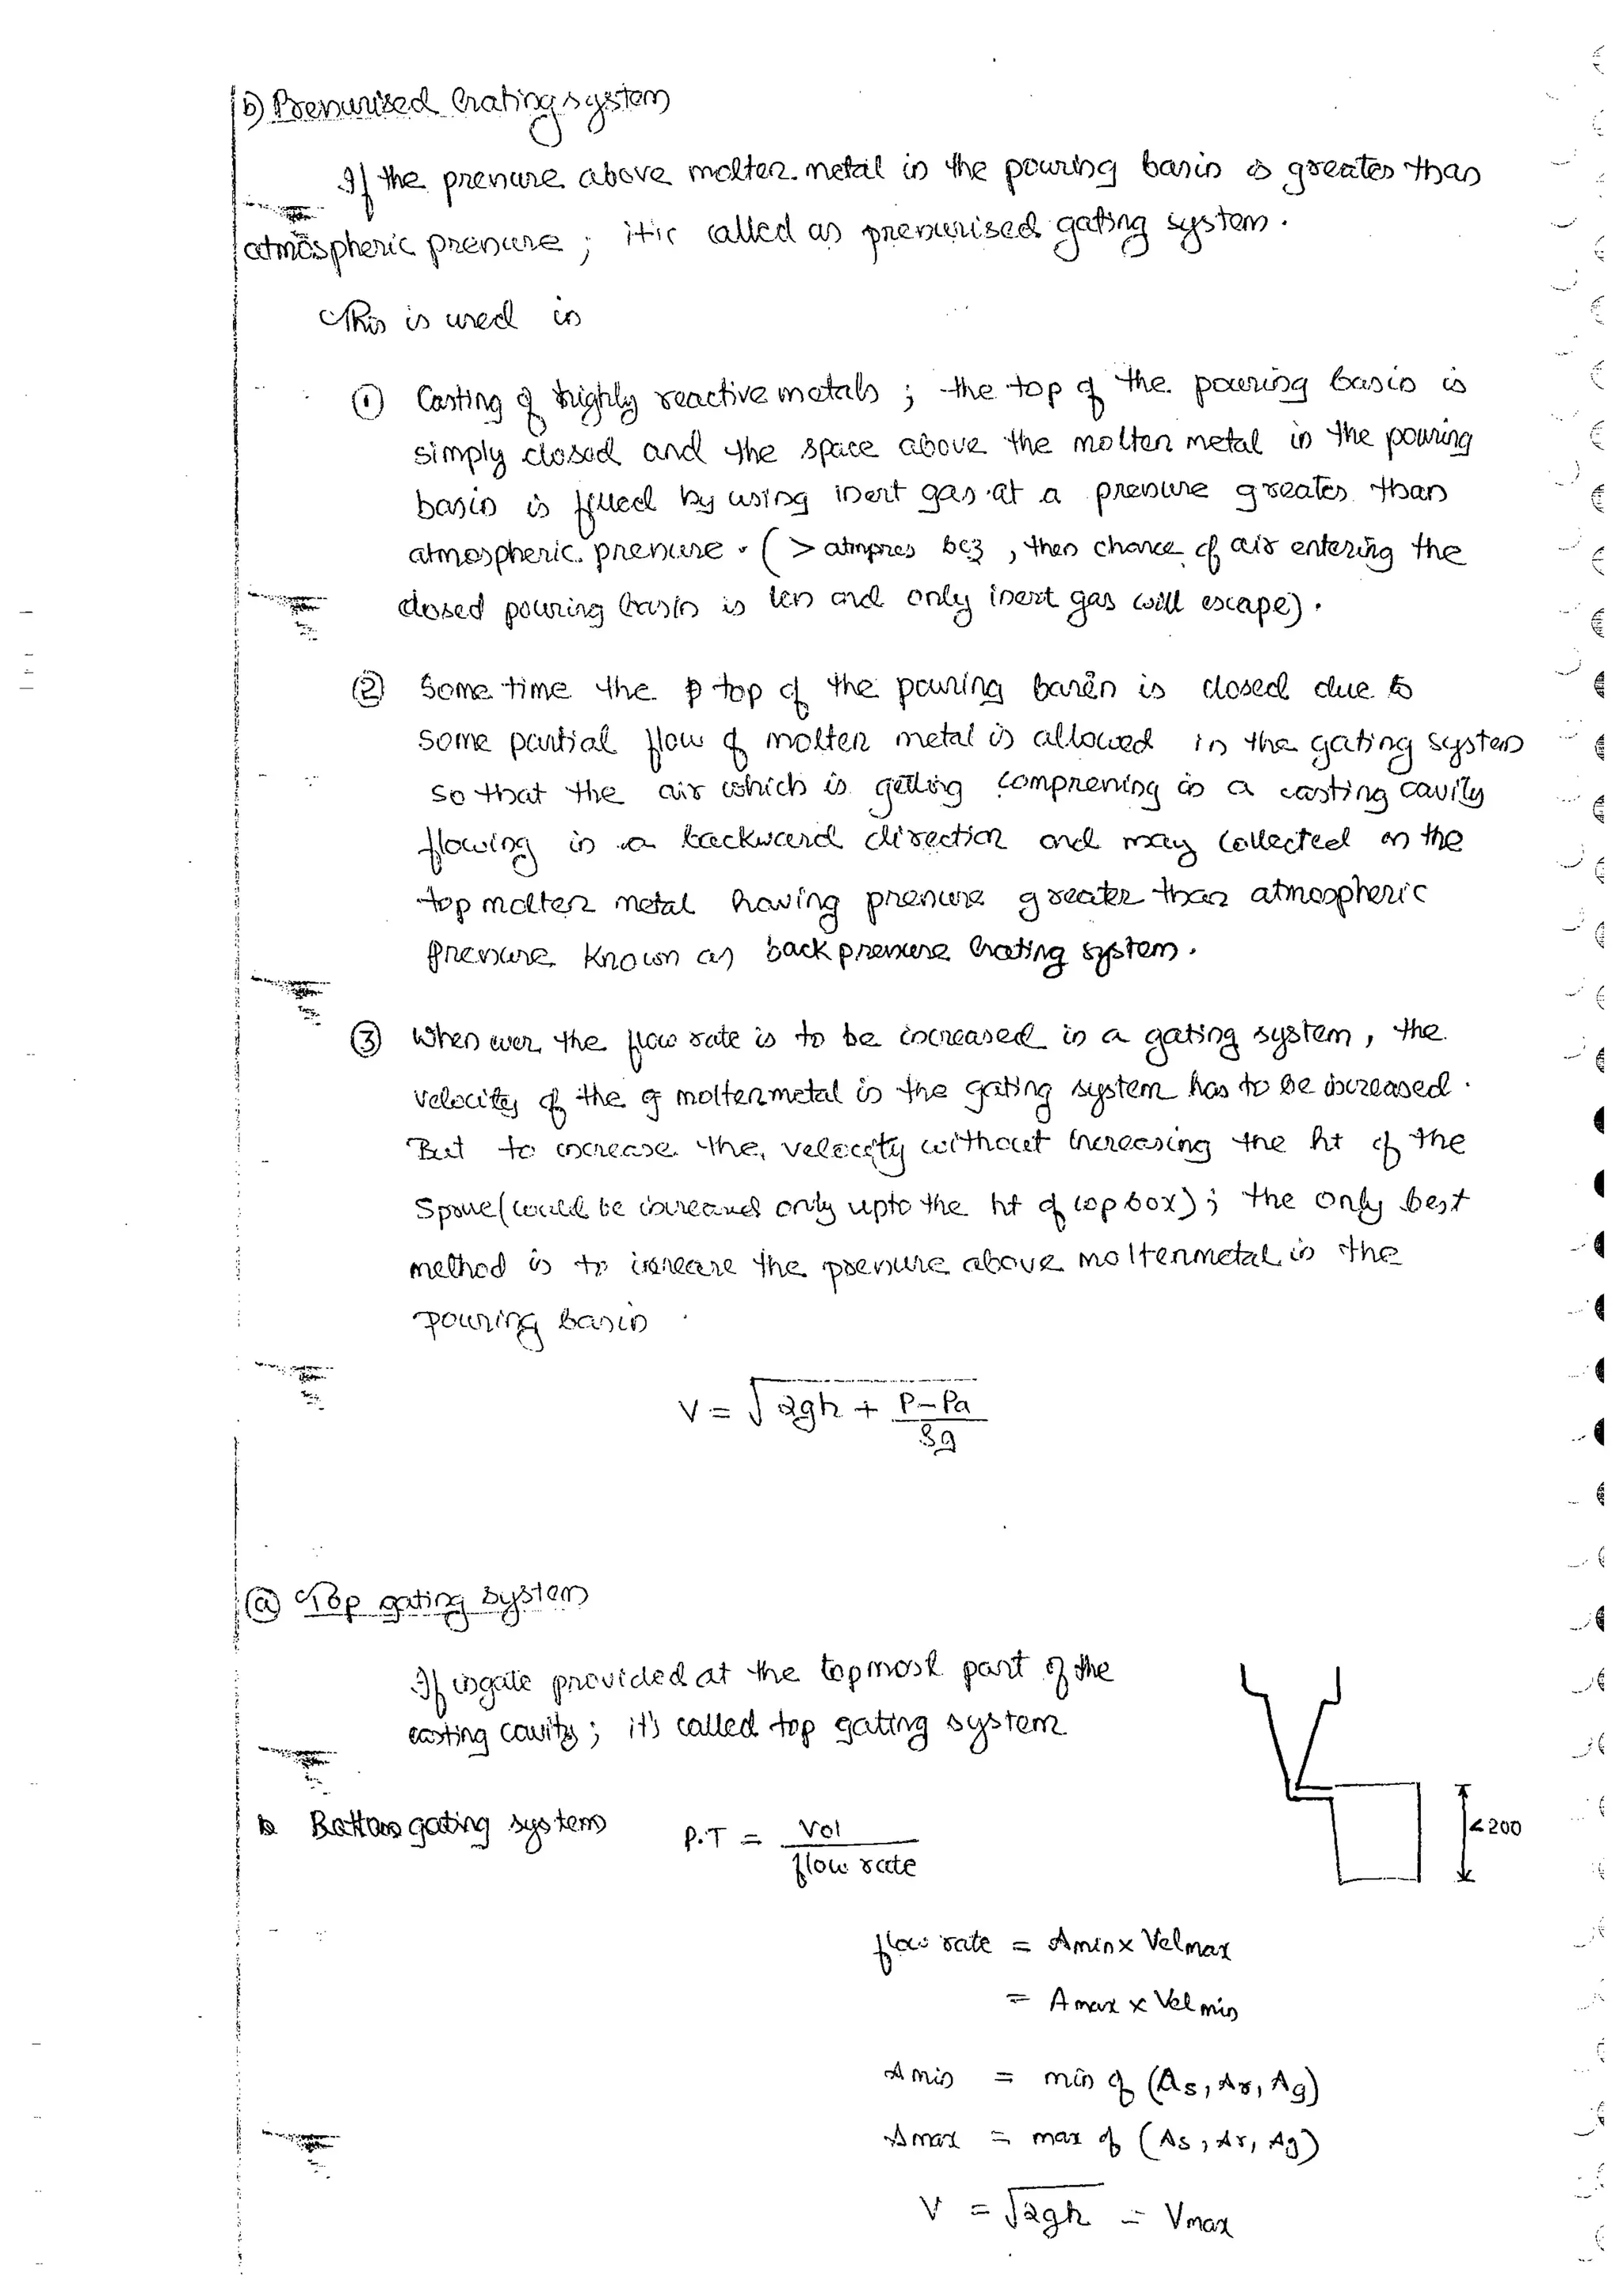 b) Pressurised Gating system
If the pressure above molten metal in the pouring basin is greater than
atmospheric pressure ; it is called as pressurised gating system .
This is used in
① Casting of highly reactive metals ; the top of the pouring basin is
simply closed and the space above the molten metal in the pouring
basin is filled by using inert gas at a pressure greater than
atmospheric pressure . ( > atmpres bcz , then chance of air entering the
closed pouring basin is less and only inert gas will escape) .
② Some time the top of the pouring basin is closed due to
some partial flow of molten metal is allowed in the gating system
so that the air which is getting compressing in a casting cavity
flowing in a backward direction and may collected on the
top molten metal having pressure greater than atmospheric
pressure known as back pressure Gating system .
③ When ever the flow rate is to be increased in a gating system , the
velocity of the of molten metal in the gating system has to be increased .
But to increase the velocity without increasing the ht of the
sprue (could be increased only upto the ht of cop box) ; the only best
method is to increase the pressure above molten metal in the
pouring basin
V = √2gh + P-Pa / ρg
ⓐ Top gating system
If ingate provided at the topmost part of the
casting cavity ; it's called top gating system
b Bottom gating system P.T = Vol / flow rate
< 200
flow rate = Amin x Velmax
= Amax x Velmin
Amin = min of (As, Ar, Ag)
Amax = max of (As, Ar, Ag)
V = √2gh = Vmax